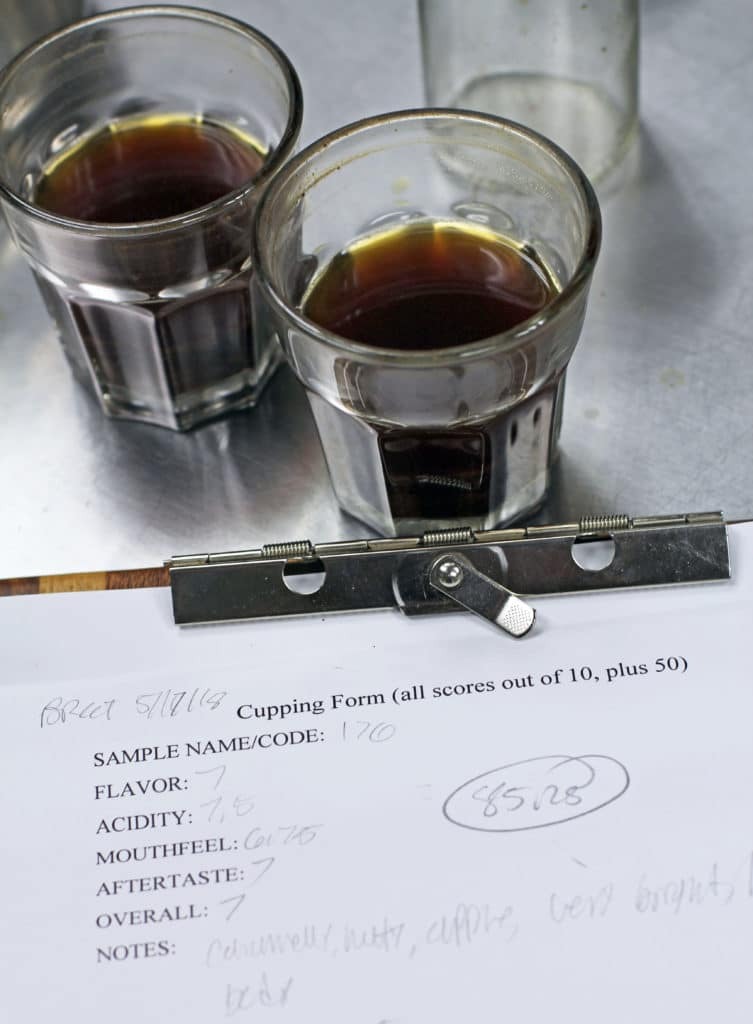 Bret 5/17/18 Cupping Form (all scores out of 10, plus 50)
SAMPLE NAME/CODE: 170
FLAVOR: 7
85.25
ACIDITY: 7.5
MOUTHFEEL: 6.75
AFTERTASTE: 7
OVERALL: 7
NOTES: nutty, apple, very bright,
body